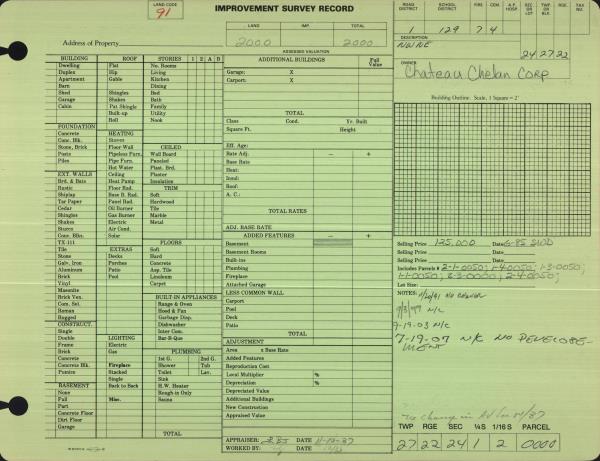 LAND CODE
91
IMPROVEMENT SURVEY RECORD
LAND IMP. TOTAL
2000 2000
Address of Property
ASSESSED VALUATION
ROAD DISTRICT SCHOOL DISTRICT FIRE CEM. A.F. HOSP.
1 129 7 4
DESCRIPTION
NWNE
24.27.22
OWNER
Chateau Chelan Corp
BUILDING ROOF STORIES 1 2 A B
Dwelling Flat No. Rooms
Duplex Hip Living
Apartment Gable Kitchen
Barn Dining
Shed Shingles Bed
Garage Shakes Bath
Cabin Pat. Shingle Family
Built-up Utility
Roll Nook
FOUNDATION
Concrete HEATING
Conc. Blk. Stoves CEILED
Stone, Brick Floor Wall Wall Board
Posts Pipeless Furn. Paneled
Piles Pipe Furn. Plast. Brd.
Hot Water Insulation
EXT. WALLS Ceiling Plaster
Brd. & Bats Heat Pump
Rustic Floor Rad. TRIM
Shiplap Base B. Rad. Soft
Tar Paper Panel Rad. Hardwood
Cedar Oil Burner Tile
Shingles Gas Burner Marble
Shakes Electric Metal
Stucco Air Cond.
Conc. Blks. Solar
TX-111 FLOORS
Tile EXTRAS Soft
Stone Decks Hard
Galv. Iron Porches Concrete
Aluminum Patio Asp. Tile
Brick Pool Linoleum
Vinyl Carpet
Masonite
Brick Ven. BUILT-IN APPLIANCES
Com. Sel. Range & Oven
Roman Hood & Fan
Rugged Garbage Disp.
CONSTRUCT. Dishwasher
Single Inter Com.
Double LIGHTING Bar-B-Que
Frame Electric
Brick Gas PLUMBING
Concrete 1st G. 2nd G.
Concrete Blk. Fireplace Shower Tub
Pumice Stacked Toilet Lav.
Single Sink
BASEMENT Back to Back H.W. Heater
None Rough-in Only
Full Misc. Sauna
Part
Concrete Floor
Dirt Floor
Garage TOTAL
ADDITIONAL BUILDINGS Full Value
Garage: X
Carport: X
TOTAL
Class Cond. Yr. Built
Square Ft. Height
Eff. Age:
Rate Adj: − +
Base Rate:
Heat:
Insul:
Roof:
A. C.:
TOTAL RATES
ADJ. BASE RATE
ADDED FEATURES − +
Basement
Basement Rooms
Built-ins
Plumbing
Fireplace
Attached Garage
LESS COMMON WALL
Carport
Pool
Deck
Patio
TOTAL
ADJUSTMENT
Area x Base Rate
Added Features
Reproduction Cost
Local Multiplier %
Depreciation %
Depreciated Value
Additional Buildings
New Construction
Appraised Value
APPRAISER: DATE 11-12-87
WORKED BY: DATE
Building Outline. Scale, 1 Square = 2'
Selling Price 125,000 Date 6-85 SWD
Selling Price Date
Includes Parcels # 2-1-0050; 1-4-0050; 1-3-0050;
1-1-0050; 2-3-0000; 2-4-0050;
Lot Size:
NOTES: NO CHANGE
N/C
7-19-03 N/C
7-19-07 N/C NO DEVELOPE-
MENT
No change in
TWP RGE SEC ¼S 1/16 S PARCEL
27 22 24 1 2 0000